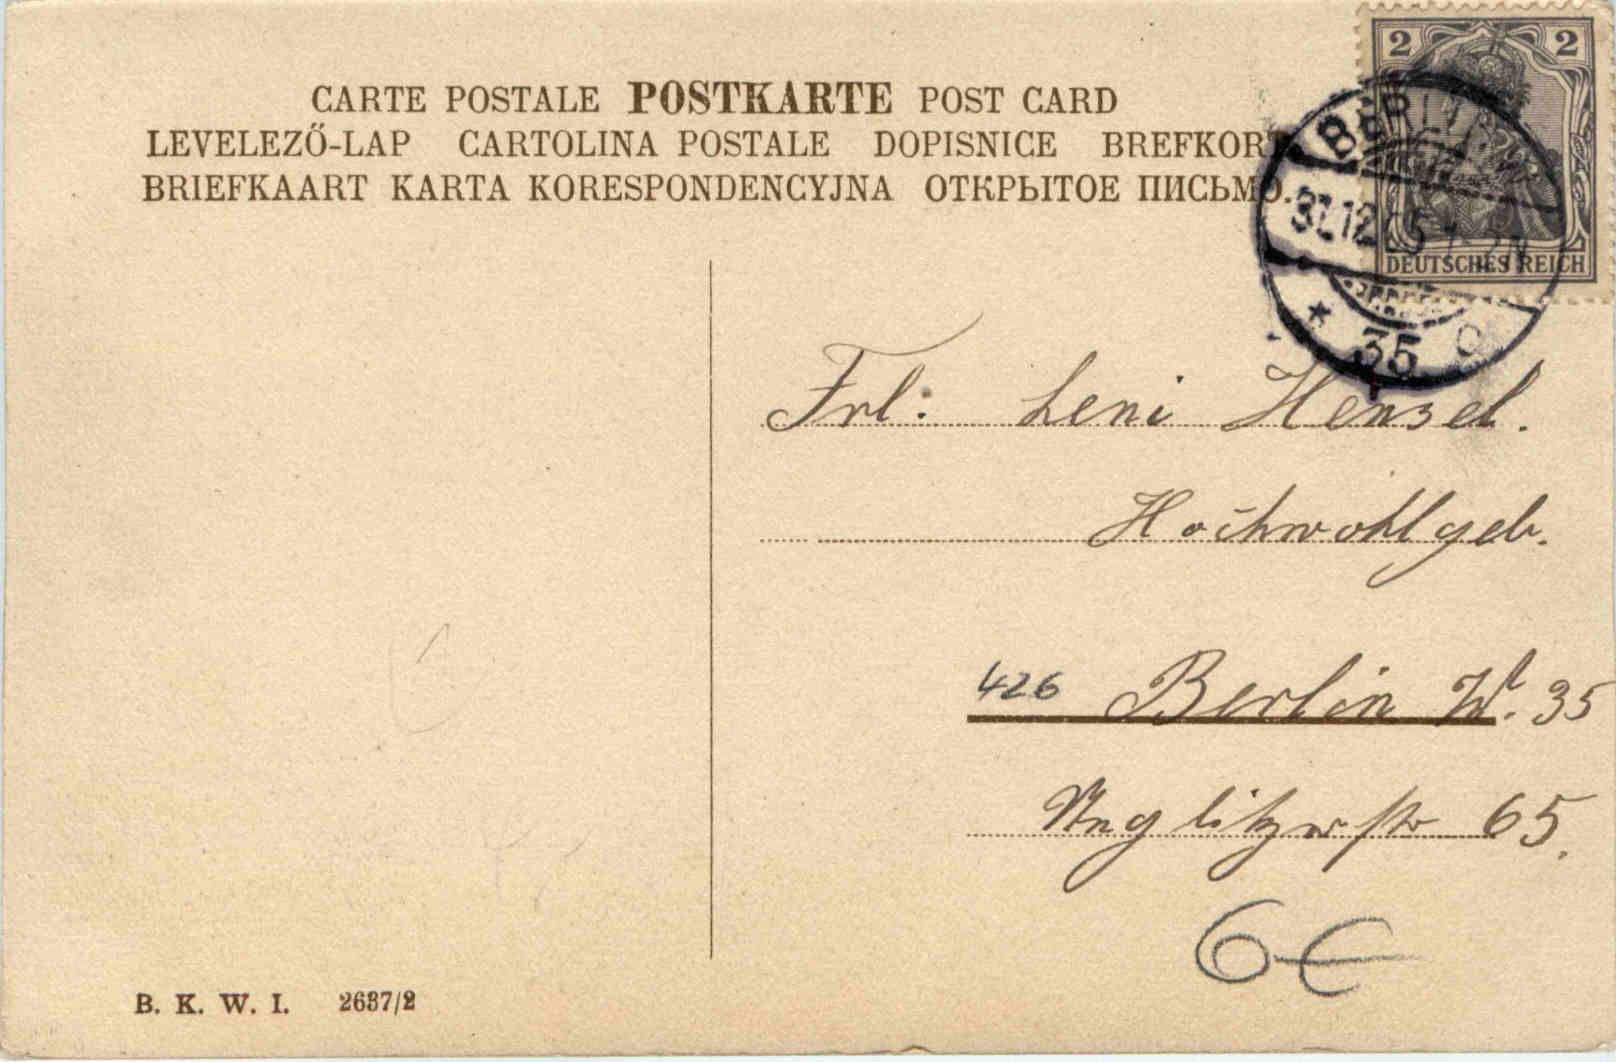 CARTE POSTALE POSTKARTE POST CARD
LEVELEZŐ-LAP CARTOLINA POSTALE DOPISNICE BREFKORT
BRIEFKAART KARTA KORESPONDENCYJNA ОТКРЫТОЕ ПИСЬМО.
2 2
DEUTSCHES REICH
BERLIN
* 35 c
Frl: Leni Hensel.
Hochwohlgeb.
426 Berlin W. 35
65.
6€
B. K. W. I. 2637/2